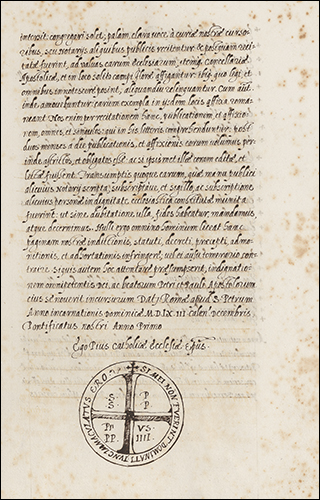 intersit congregari solet, palam, clara voce à curiæ nostræ curso-
ribus, seu notarijs aliquibus publicis recitentur, & postquam reci-
tatæ fuerint, ad valvas earum ecclesiarum, etcancellariæ
Apostolicæ, et in loco solito campi floræ affigantur: ibique legi, et
omnibus innotescere possint, aliquandiu relinquantur. Cum aut̃
inde amovebuntur: earum exempla in ijsdem locis affixa rema-
neant. Nos enim per recitationem hanc, publicationem, et affixio-
nem, omnes, et singulos: qui in his litteris comprehenduntur: post
duos menses à die publicationis, et affixionis earum volumus, per-
inde astrictos, et obligatos esse ac si ipsismet illæ coram editæ, et
lectæ fuissent. Transumptis quoque earum, quæ manu publici
alicuius Notarij scripta, subscriptave, et sigillo, ac subscriptione
alicuius personæ in dignitate ecclesiastica constitutæ munita
fuerint: ut sine dubitatione ulla, fides habeatur, mandamus,
atque decernimus. Nulli ergo omnino hominum liceat hanc
paginam nostræ indictionis, statuti, decreti, præcepti, ad-
monitionis, et adhortationis infringere, vel ei ausu temerario con-
traire. Si quis autem hoc attentare præsumpserit, indignatio-
nem omnipotentis Dei, ac beatorum Petri et Pauli Apostolorum
eius se noverit incursurum. Dat. Romæ apud S. Petrum
Anno incarnationis dominicæ M D LX III calen. Decembris
Pontificatus nostri Anno Primo
Ego Pius Catholicæ Ecclesiæ Ep̃us.
SI MEI NON FVERINT DOMINATI TVNC IMMACVLATVS ERO
S P
S P
PP VS
PP. IIII.